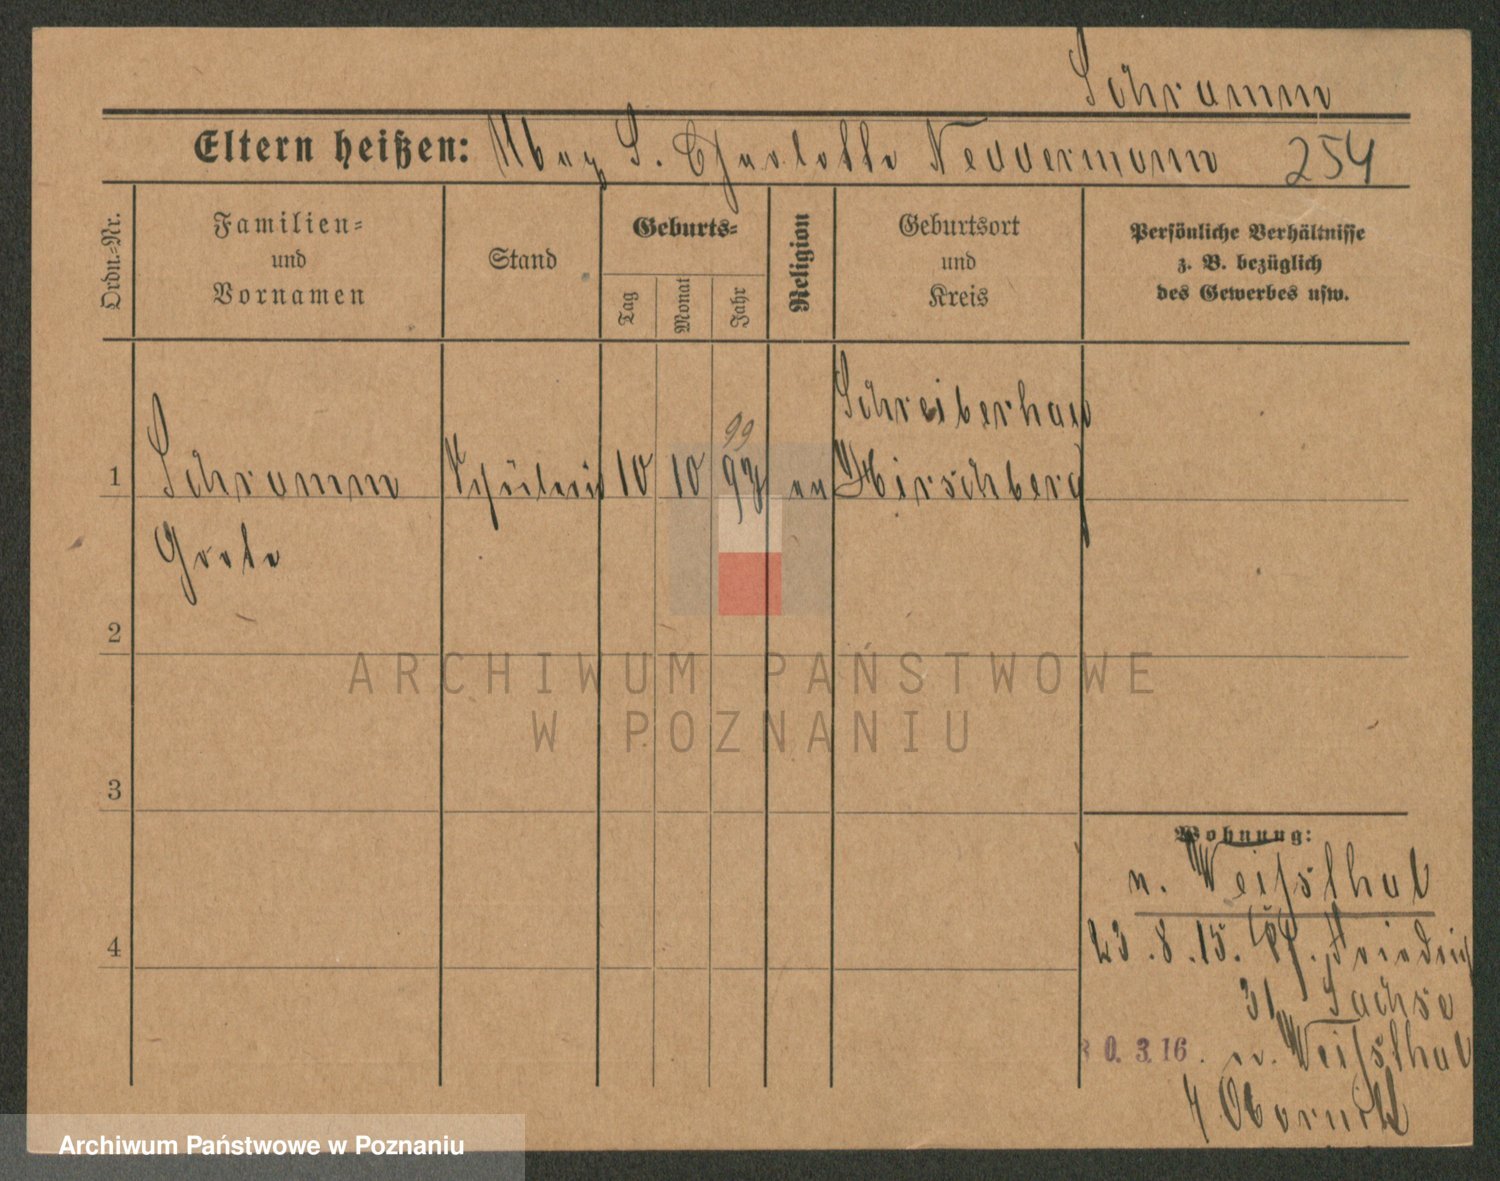 Schramm
Eltern heißen: S. Charlotte Neddermann 254
Ordn.-Nr.
Familien-
und
Vornamen
Stand
Geburts-
Tag
Monat
Jahr
Religion
Geburtsort
und
Kreis
Persönliche Verhältnisse
z. B. bezüglich
des Gewerbes usw.
Schreiberhau
99
1 Schramm Schülerin 10 10 ev Hirschberg
Grete
2
ARCHIWUM PAŃSTWOWE
W POZNANIU
3
Wohnung:
n. Weißthal
4
23.8.15. Friedrich
31 Sachse
30.3.16. n. Weißthal
Obornik
Archiwum Państwowe w Poznaniu